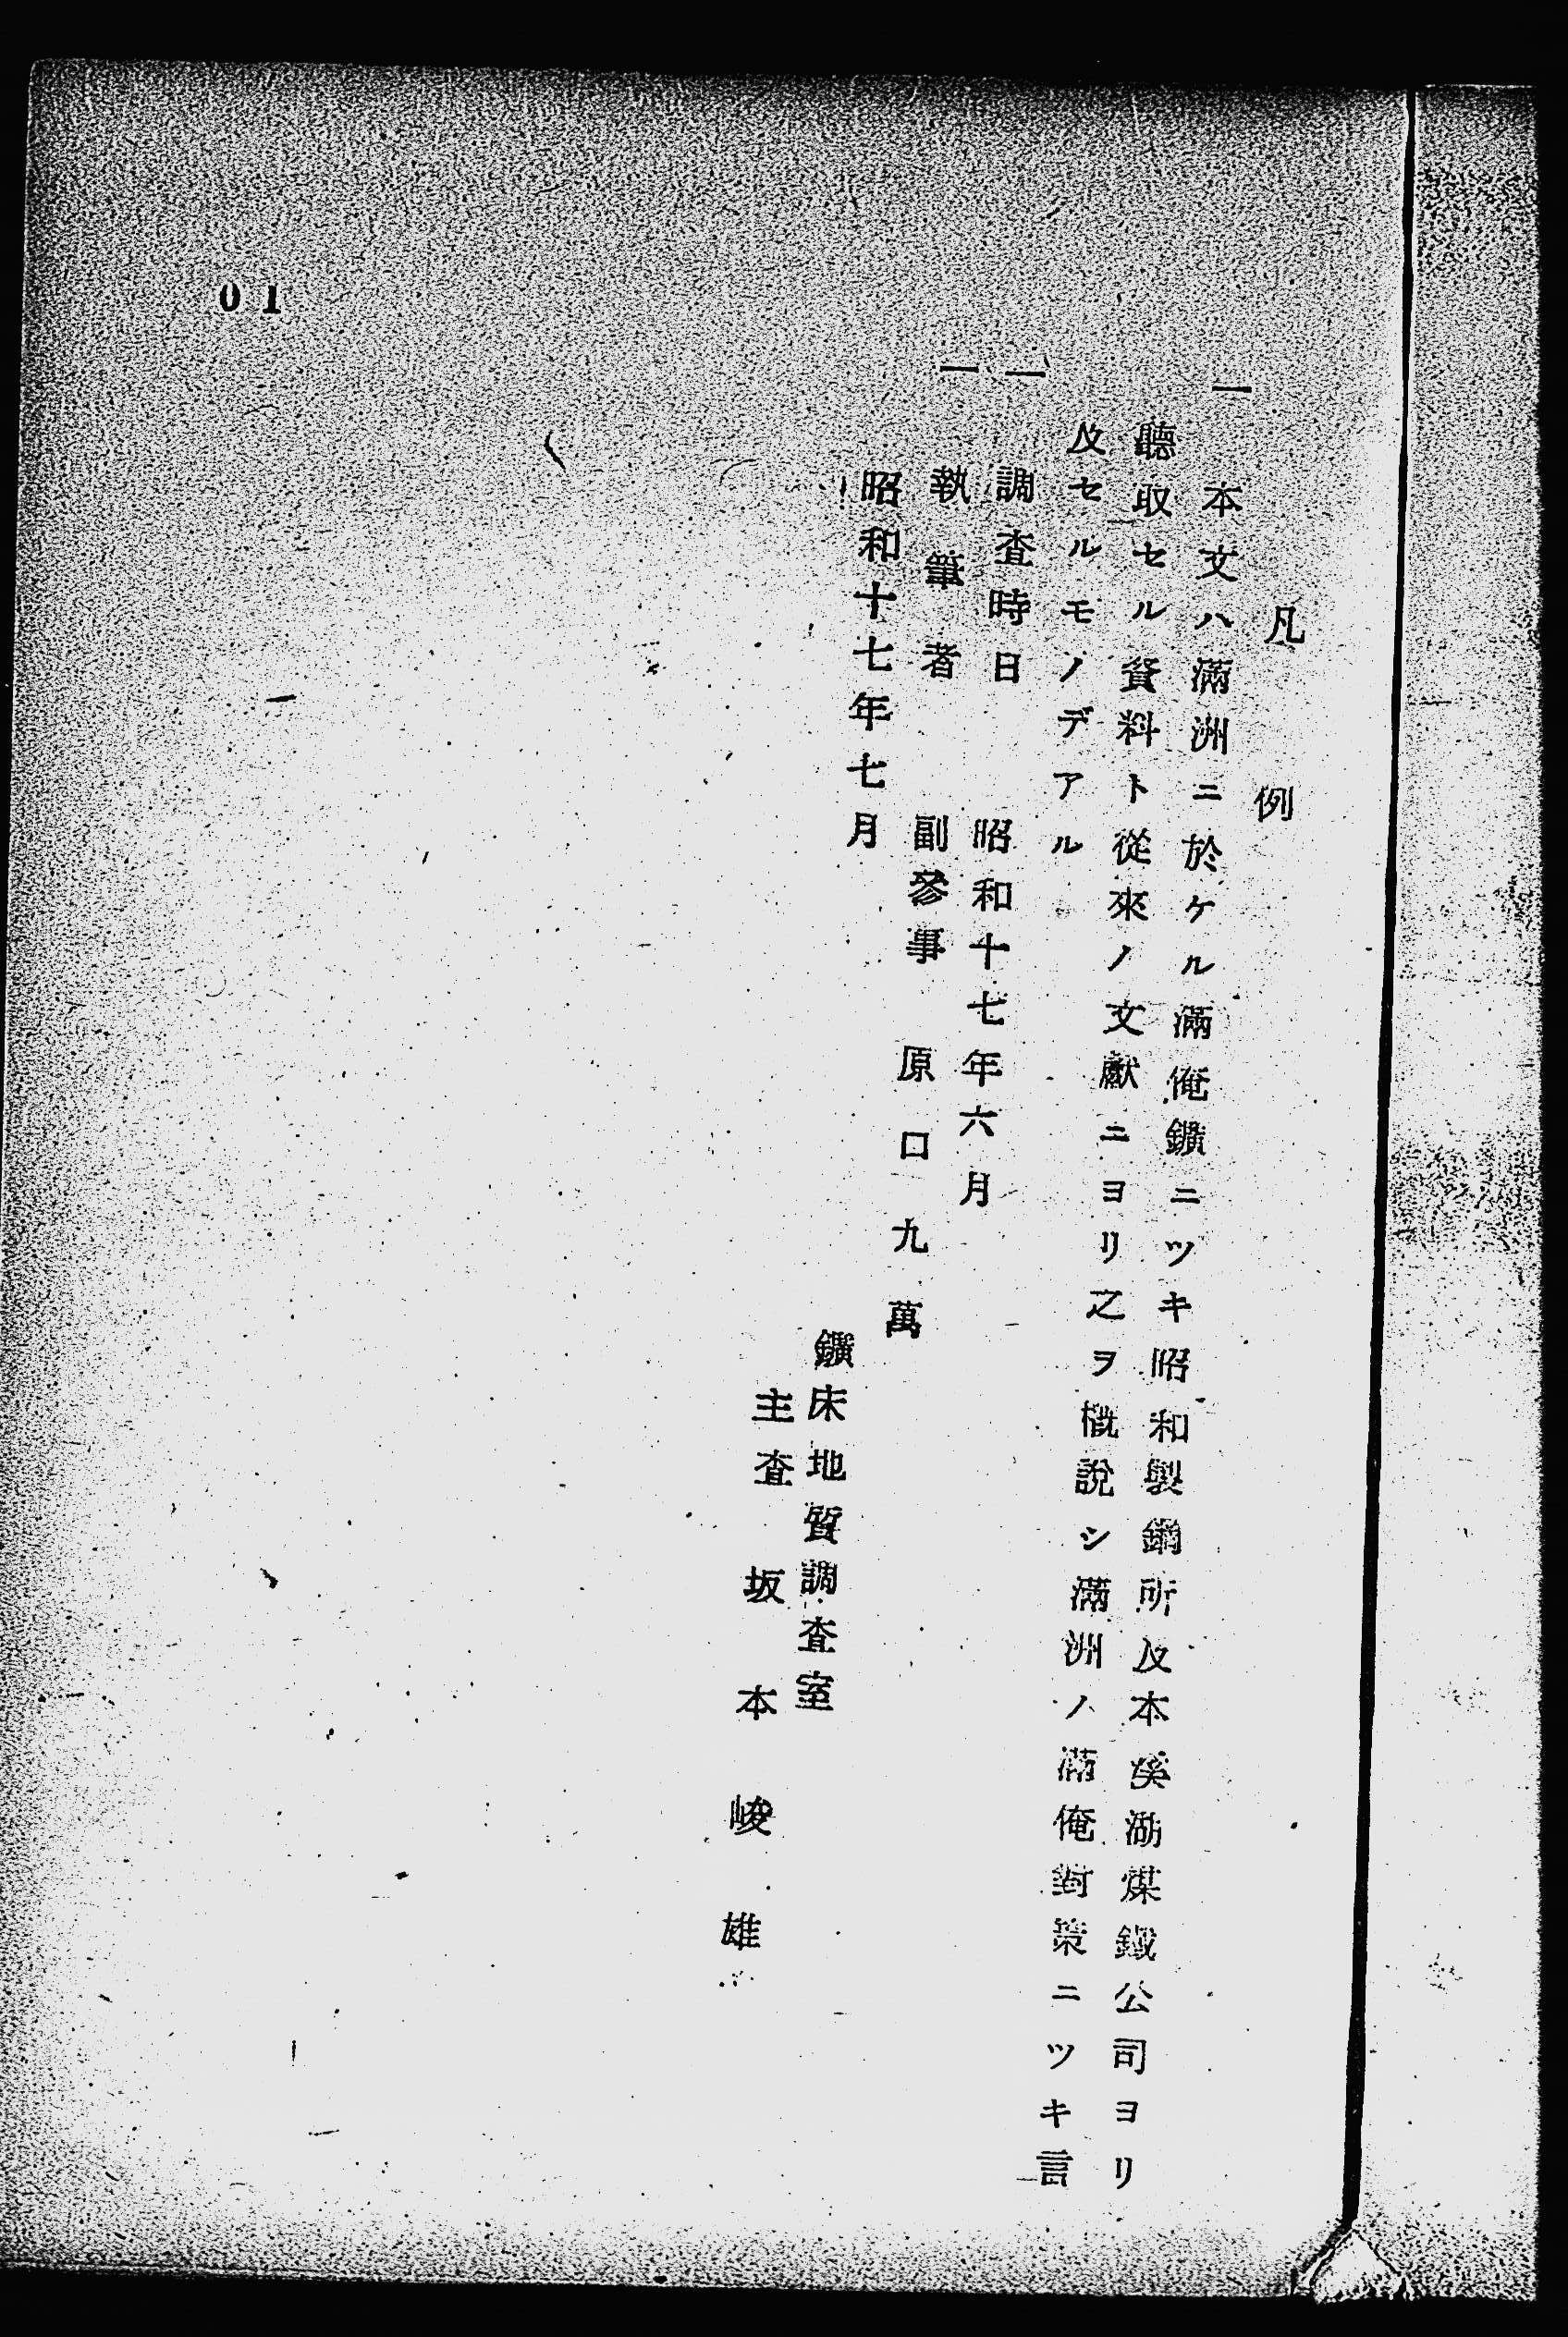 凡例
一 本文ハ滿洲ニ於ケル滿俺鑛ニツキ昭和製鋼所及本溪湖煤鐵公司ヨリ
聽取セル資料ト從來ノ文獻ニヨリ之ヲ槪說シ滿洲ノ滿俺對策ニツキ言
及セルモノデアル
一 調査時日 昭和十七年六月
一 執筆者 副參事 原口九萬
昭和十七年七月
鑛床地質調査室
主査 坂本峻雄
01